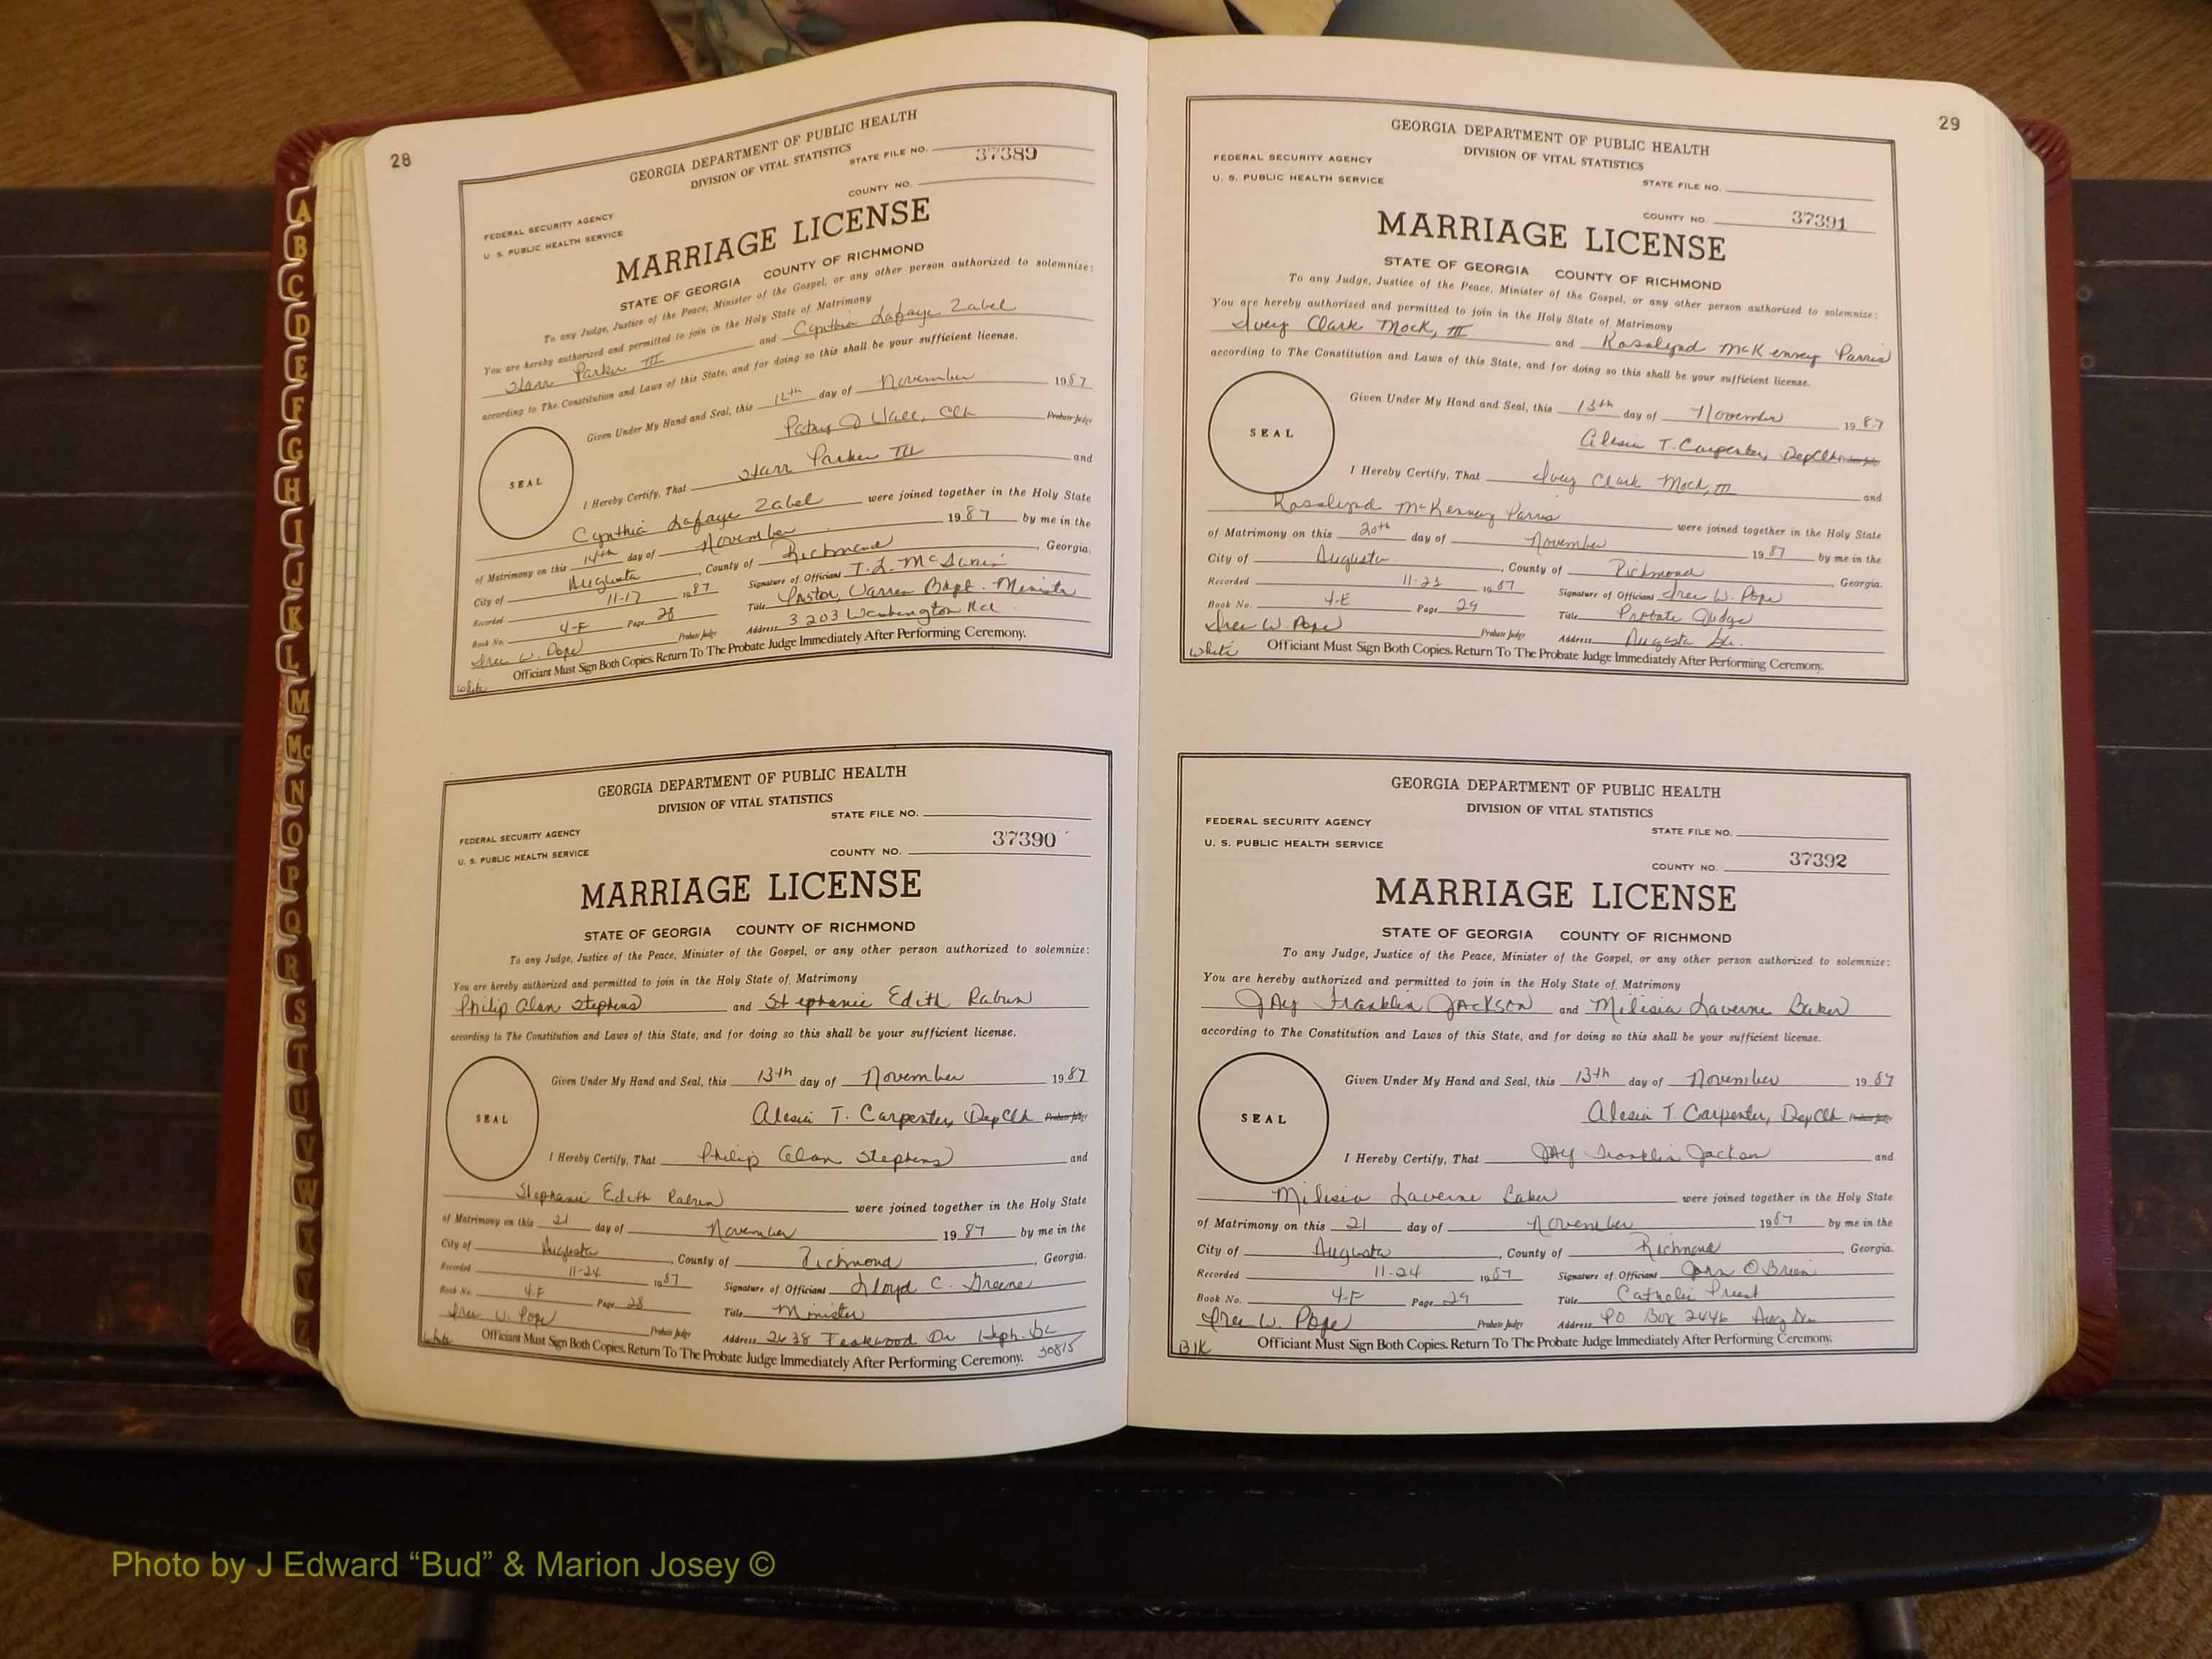 28
GEORGIA DEPARTMENT OF PUBLIC HEALTH
DIVISION OF VITAL STATISTICS
STATE FILE NO. 37389
COUNTY NO.
FEDERAL SECURITY AGENCY
U. S. PUBLIC HEALTH SERVICE
MARRIAGE LICENSE
STATE OF GEORGIA COUNTY OF RICHMOND
To any Judge, Justice of the Peace, Minister of the Gospel, or any other person authorized to solemnize:
You are hereby authorized and permitted to join in the Holy State of Matrimony
Starr Parker III and Cynthia Lafaye Zabel
according to The Constitution and Laws of this State, and for doing so this shall be your sufficient license.
Given Under My Hand and Seal, this 12th day of November 1987
Patsy Wall, Clk Probate Judge
SEAL
I Hereby Certify, That Starr Parker III and
Cynthia Lafaye Zabel were joined together in the Holy State
of Matrimony on this 14th day of November 1987 by me in the
City of Augusta, County of Richmond, Georgia.
Recorded 11-17 1987 Signature of Officiant
Book No. 4-F Page 28 Title Pastor, Warren Bapt. Minister
Isaac W. Pope Probate Judge Address 3203 Washington Rd
white Officiant Must Sign Both Copies. Return To The Probate Judge Immediately After Performing Ceremony.
GEORGIA DEPARTMENT OF PUBLIC HEALTH
DIVISION OF VITAL STATISTICS
STATE FILE NO.
FEDERAL SECURITY AGENCY
U. S. PUBLIC HEALTH SERVICE
COUNTY NO. 37390
MARRIAGE LICENSE
STATE OF GEORGIA COUNTY OF RICHMOND
To any Judge, Justice of the Peace, Minister of the Gospel, or any other person authorized to solemnize:
You are hereby authorized and permitted to join in the Holy State of Matrimony
Philip Alan Stephens and Stephanie Edith Rabun
according to The Constitution and Laws of this State, and for doing so this shall be your sufficient license.
Given Under My Hand and Seal, this 13th day of November 1987
Alesia T. Carpenter, Dep Clk Probate Judge
SEAL
I Hereby Certify, That Philip Alan Stephens and
Stephanie Edith Rabun were joined together in the Holy State
of Matrimony on this 21 day of November 1987 by me in the
City of Augusta, County of Richmond, Georgia.
Recorded 11-24 1987 Signature of Officiant Lloyd C. Greene
Book No. 4-F Page 28 Title Minister
Isaac W. Pope Probate Judge Address 2638 Teakwood Dr Heph. Ga 30815
white Officiant Must Sign Both Copies. Return To The Probate Judge Immediately After Performing Ceremony.
29
GEORGIA DEPARTMENT OF PUBLIC HEALTH
DIVISION OF VITAL STATISTICS
FEDERAL SECURITY AGENCY
U. S. PUBLIC HEALTH SERVICE
STATE FILE NO.
COUNTY NO. 37391
MARRIAGE LICENSE
STATE OF GEORGIA COUNTY OF RICHMOND
To any Judge, Justice of the Peace, Minister of the Gospel, or any other person authorized to solemnize:
You are hereby authorized and permitted to join in the Holy State of Matrimony
Ivey Clark Mock, III and Rosalynd McKenney Parris
according to The Constitution and Laws of this State, and for doing so this shall be your sufficient license.
Given Under My Hand and Seal, this 13th day of November 1987
Alesia T. Carpenter, Dep Clk Probate Judge
SEAL
I Hereby Certify, That Ivey Clark Mock, III and
Rosalynd McKenney Parris were joined together in the Holy State
of Matrimony on this 20th day of November 1987 by me in the
City of Augusta, County of Richmond, Georgia.
Recorded 11-23 1987 Signature of Officiant Isaac W. Pope
Book No. 4-F Page 29 Title Probate Judge
Isaac W. Pope Probate Judge Address Augusta Ga.
white Officiant Must Sign Both Copies. Return To The Probate Judge Immediately After Performing Ceremony.
GEORGIA DEPARTMENT OF PUBLIC HEALTH
DIVISION OF VITAL STATISTICS
FEDERAL SECURITY AGENCY
STATE FILE NO.
U. S. PUBLIC HEALTH SERVICE
COUNTY NO. 37392
MARRIAGE LICENSE
STATE OF GEORGIA COUNTY OF RICHMOND
To any Judge, Justice of the Peace, Minister of the Gospel, or any other person authorized to solemnize:
You are hereby authorized and permitted to join in the Holy State of Matrimony
JAy Franklin JACKSON and Milisia Laverne Baker
according to The Constitution and Laws of this State, and for doing so this shall be your sufficient license.
Given Under My Hand and Seal, this 13th day of November 1987
Alesia T. Carpenter, Dep Clk Probate Judge
SEAL
I Hereby Certify, That JAy Franklin Jackson and
Milisia Laverne Baker were joined together in the Holy State
of Matrimony on this 21 day of November 1987 by me in the
City of Augusta, County of Richmond, Georgia.
Recorded 11-24 1987 Signature of Officiant John O'Brien
Book No. 4-F Page 29 Title Catholic Priest
Isaac W. Pope Probate Judge Address PO Box 2446 Aug Ga
Blk Officiant Must Sign Both Copies. Return To The Probate Judge Immediately After Performing Ceremony.
A
B
C
D
E
F
G
H
I
J
K
L
M
Mc
N
O
P
Q
R
S
T
U
V
W
X
Y
Z
Photo by J Edward “Bud” & Marion Josey ©